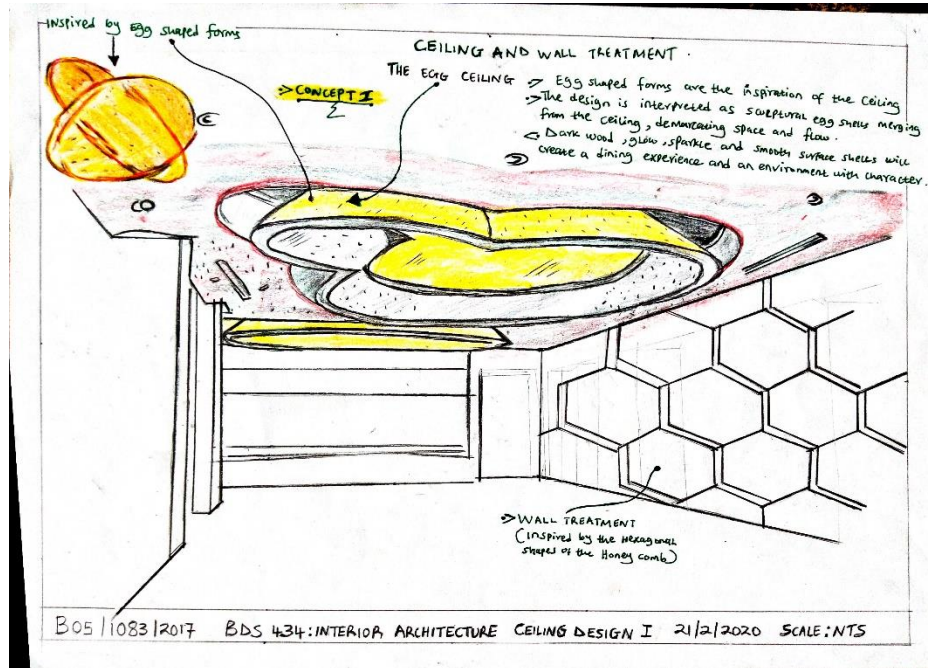 Inspired by Egg shaped forms
CEILING AND WALL TREATMENT.
THE EGG CEILING
:> CONCEPT I
-> Egg shaped forms are the inspiration of the Ceiling
:> The design is interpreted as sculptural egg shells merging
from the ceiling, demarcating space and flow.
Dark wood, glow, sparkle and smooth surface shells will
create a dining experience and an environment with character.
:> WALL TREATMENT
(Inspired by the Hexagonal
shapes of the Honey comb)
B05/1083/2017 BDS 434: INTERIOR ARCHITECTURE CEILING DESIGN I 21/2/2020 SCALE: NTS